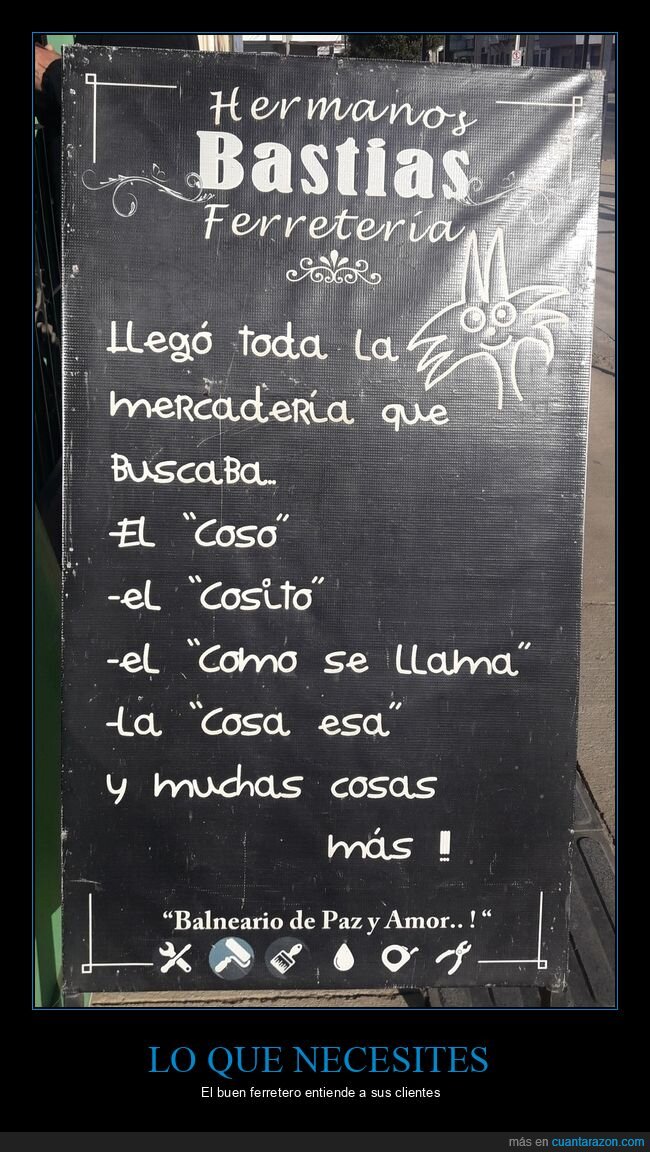 Hermanos
Bastias
Ferretería
Llegó toda la
mercadería que
Buscaba...
-El "Coso"
-el "Cosito"
-el "Como se llama"
-La "Cosa esa"
y muchas cosas
más !!
“Balneario de Paz y Amor.. ! “
LO QUE NECESITES
El buen ferretero entiende a sus clientes
más en cuantarazon.com